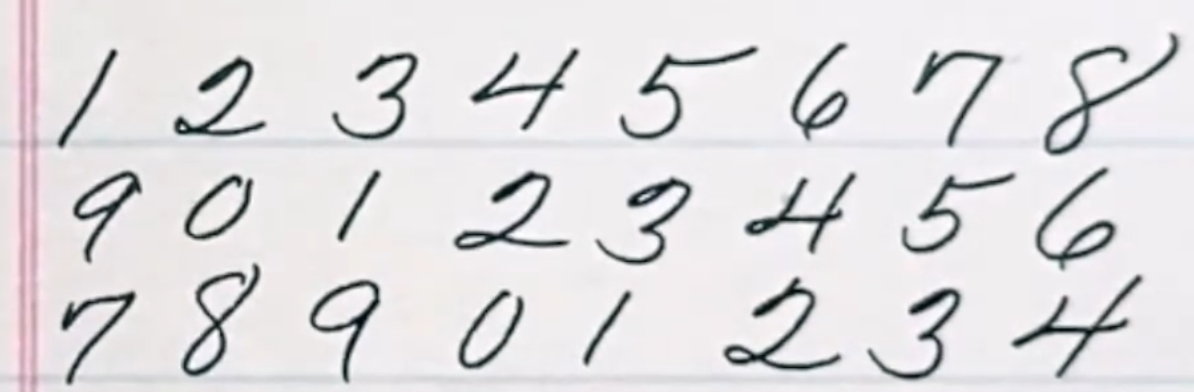 1 2 3 4 5 6 7 8
9 0 1 2 3 4 5 6
7 8 9 0 1 2 3 4